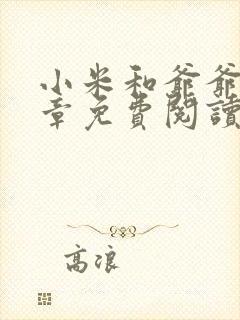 小米和爺爺
章免費閱讀
高浪